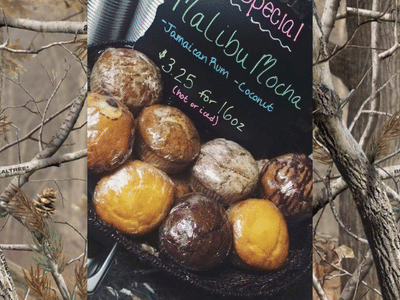 Special
Malibu Mocha
-Jamaican Rum -Coconut
$3.25 for 16oz
(hot or iced)